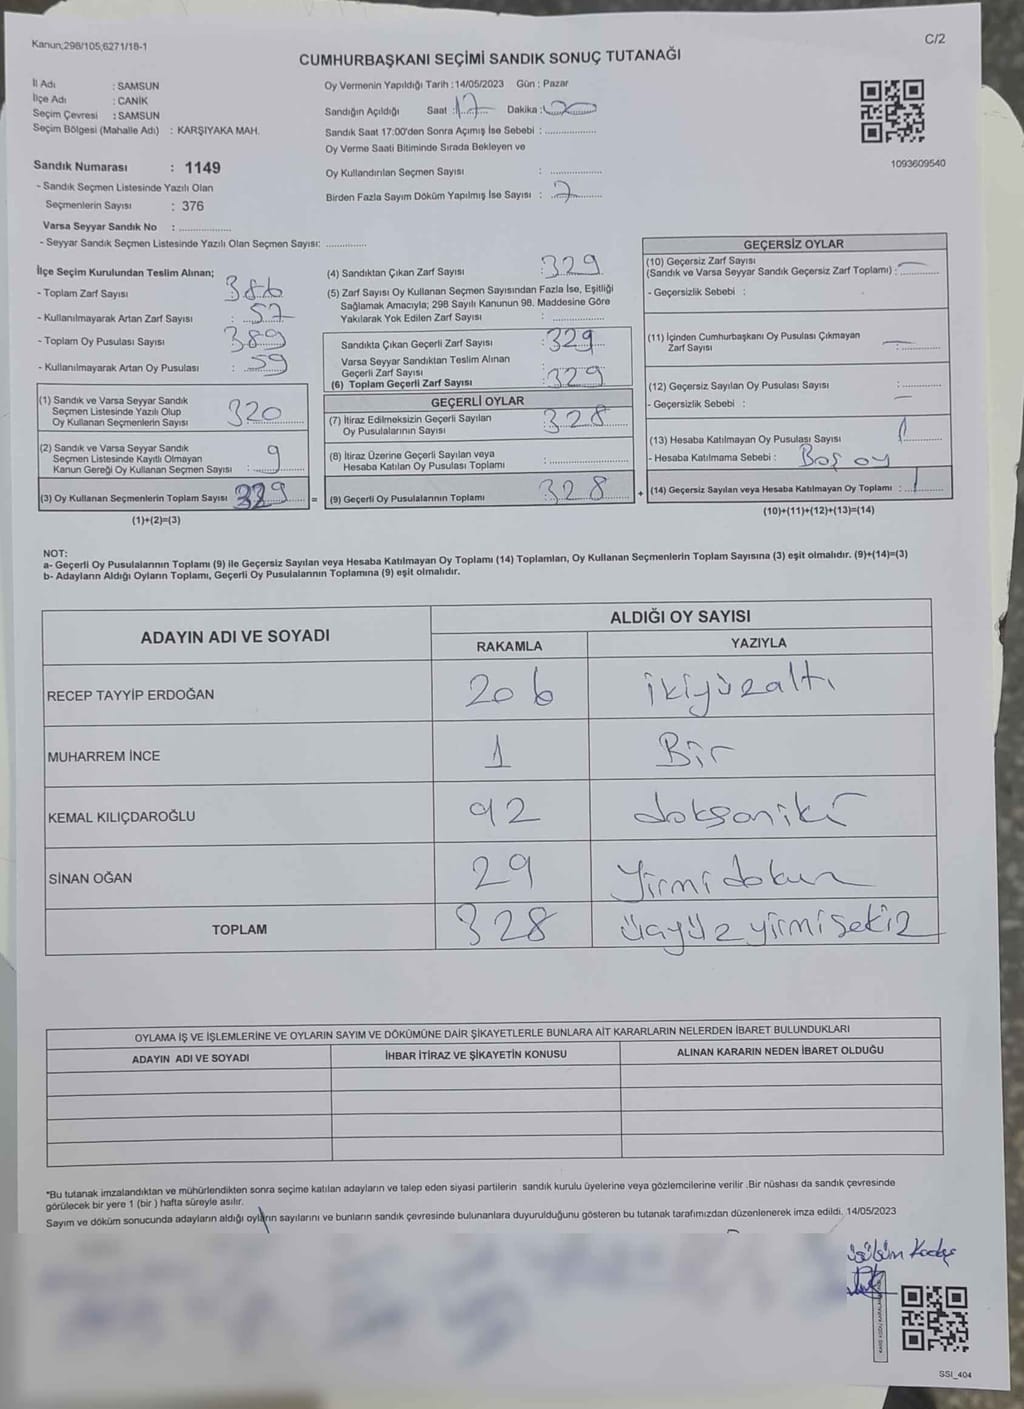 Kanun;298/105,6271/18-1
C/2
CUMHURBAŞKANI SEÇİMİ SANDIK SONUÇ TUTANAĞI
İl Adı : SAMSUN
İlçe Adı : CANİK
Seçim Çevresi : SAMSUN
Seçim Bölgesi (Mahalle Adı) : KARŞIYAKA MAH.
Sandık Numarası : 1149
- Sandık Seçmen Listesinde Yazılı Olan
Seçmenlerin Sayısı : 376
Varsa Seyyar Sandık No :
- Seyyar Sandık Seçmen Listesinde Yazılı Olan Seçmen Sayısı:
Oy Vermenin Yapıldığı Tarih : 14/05/2023 Gün : Pazar
Sandığın Açıldığı Saat : 17 Dakika : 00
Sandık Saat 17:00'den Sonra Açımış İse Sebebi :
Oy Verme Saati Bitiminde Sırada Bekleyen ve
Oy Kullandırılan Seçmen Sayısı :
Birden Fazla Sayım Döküm Yapılmış İse Sayısı :
1093609540
İlçe Seçim Kurulundan Teslim Alınan;
- Toplam Zarf Sayısı 386
- Kullanılmayarak Artan Zarf Sayısı : 57
- Toplam Oy Pusulası Sayısı 389
- Kullanılmayarak Artan Oy Pusulası : 59
(1) Sandık ve Varsa Seyyar Sandık
Seçmen Listesinde Yazılı Olup
Oy Kullanan Seçmenlerin Sayısı 320
(2) Sandık ve Varsa Seyyar Sandık
Seçmen Listesinde Kayıtlı Olmayan
Kanun Gereği Oy Kullanan Seçmen Sayısı : 9
(3) Oy Kullanan Seçmenlerin Toplam Sayısı 329 =
(1)+(2)=(3)
(4) Sandıktan Çıkan Zarf Sayısı : 329
(5) Zarf Sayısı Oy Kullanan Seçmen Sayısından Fazla İse, Eşitliği
Sağlamak Amacıyla; 298 Sayılı Kanunun 98. Maddesine Göre
Yakılarak Yok Edilen Zarf Sayısı :
Sandıkta Çıkan Geçerli Zarf Sayısı : 329
Varsa Seyyar Sandıktan Teslim Alınan
Geçerli Zarf Sayısı
(6) Toplam Geçerli Zarf Sayısı : 329
GEÇERLİ OYLAR
(7) İtiraz Edilmeksizin Geçerli Sayılan
Oy Pusulalarının Sayısı : 328
(8) İtiraz Üzerine Geçerli Sayılan veya
Hesaba Katılan Oy Pusulası Toplamı :
(9) Geçerli Oy Pusulalarının Toplamı 328 +
GEÇERSİZ OYLAR
(10) Geçersiz Zarf Sayısı
(Sandık ve Varsa Seyyar Sandık Geçersiz Zarf Toplamı) : —
- Geçersizlik Sebebi :
(11) İçinden Cumhurbaşkanı Oy Pusulası Çıkmayan
Zarf Sayısı : —
(12) Geçersiz Sayılan Oy Pusulası Sayısı :
- Geçersizlik Sebebi : —
(13) Hesaba Katılmayan Oy Pusulası Sayısı : 1
- Hesaba Katılmama Sebebi : Boş oy
(14) Geçersiz Sayılan veya Hesaba Katılmayan Oy Toplamı : 1
(10)+(11)+(12)+(13)=(14)
NOT:
a- Geçerli Oy Pusulalarının Toplamı (9) ile Geçersiz Sayılan veya Hesaba Katılmayan Oy Toplamı (14) Toplamları, Oy Kullanan Seçmenlerin Toplam Sayısına (3) eşit olmalıdır. (9)+(14)=(3)
b- Adayların Aldığı Oyların Toplamı, Geçerli Oy Pusulalarının Toplamına (9) eşit olmalıdır.
ADAYIN ADI VE SOYADI
ALDIĞI OY SAYISI
RAKAMLA YAZIYLA
RECEP TAYYİP ERDOĞAN 206 ikiyüzaltı
MUHARREM İNCE 1 Bir
KEMAL KILIÇDAROĞLU 92 doksaniki
SİNAN OĞAN 29 Yirmidokuz
TOPLAM 328 üçyüzyirmisekiz
OYLAMA İŞ VE İŞLEMLERİNE VE OYLARIN SAYIM VE DÖKÜMÜNE DAİR ŞİKAYETLERLE BUNLARA AİT KARARLARIN NELERDEN İBARET BULUNDUKLARI
ADAYIN ADI VE SOYADI İHBAR İTİRAZ VE ŞİKAYETİN KONUSU ALINAN KARARIN NEDEN İBARET OLDUĞU
*Bu tutanak imzalandıktan ve mühürlendikten sonra seçime katılan adayların ve talep eden siyasi partilerin sandık kurulu üyelerine veya gözlemcilerine verilir .Bir nüshası da sandık çevresinde
görülecek bir yere 1 (bir ) hafta süreyle asılır.
Sayım ve döküm sonucunda adayların aldığı oyların sayılarını ve bunların sandık çevresinde bulunanlara duyurulduğunu gösteren bu tutanak tarafımızdan düzenlenerek imza edildi. 14/05/2023
SSI_404